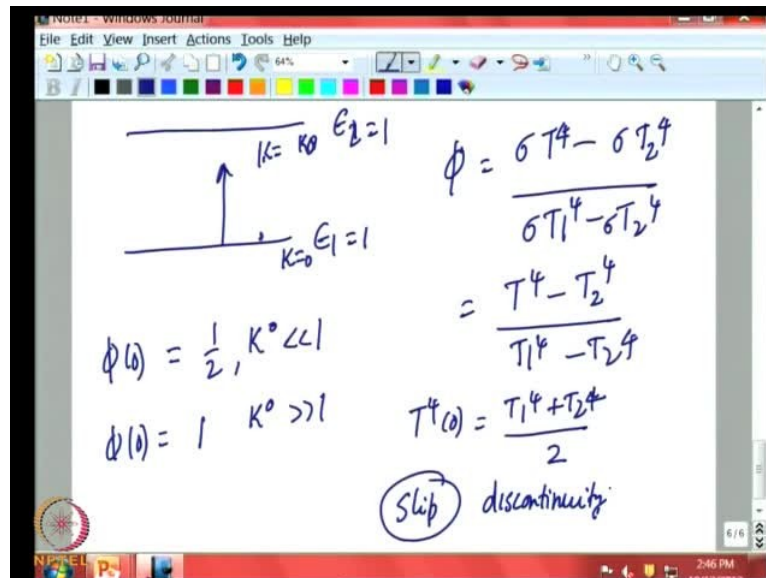 Note1 - Windows Journal
File Edit View Insert Actions Tools Help
64%
B I
K= K0 ϵ2=1
K=0 ϵ1=1
ϕ = σT⁴ - σT₂⁴ / σT₁⁴ - σT₂⁴
= T⁴ - T₂⁴ / T₁⁴ - T₂⁴
ϕ(0) = 1/2, K° <<1
ϕ(0) = 1 K° >>1
T⁴(0) = T₁⁴ + T₂⁴ / 2
Slip discontinuity
6/6
NPTEL
2:46 PM